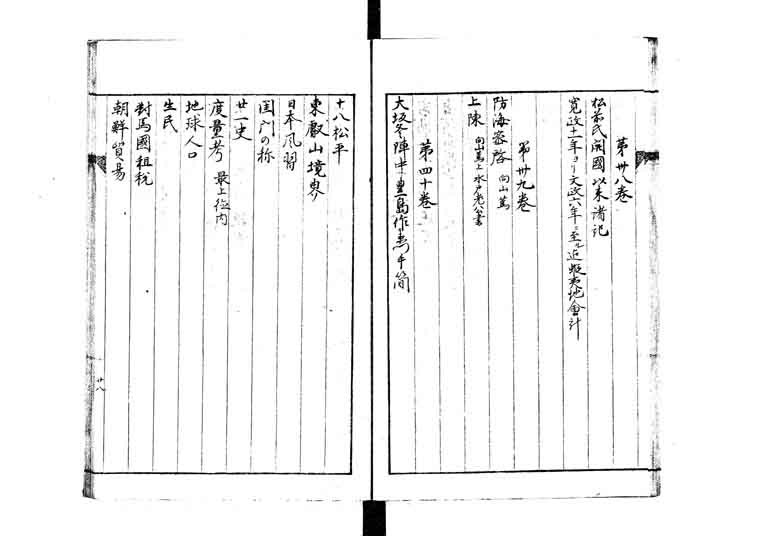 第卅八巻
松前氏開國以来諸記
寛政十一年ヨリ文政六年ニ至ル迄蝦夷地會計
第卅九巻
防海密啓 向山篤
上陳 向山篤上水戸老公書
第四十巻
大坂冬陣中豊島作恵手簡
十八松平
東叡山境界
日本風習
閨門の称
廿一史
度量考 最上徳内
地球人口
生民
對馬國租税
朝鮮貿易
廿八